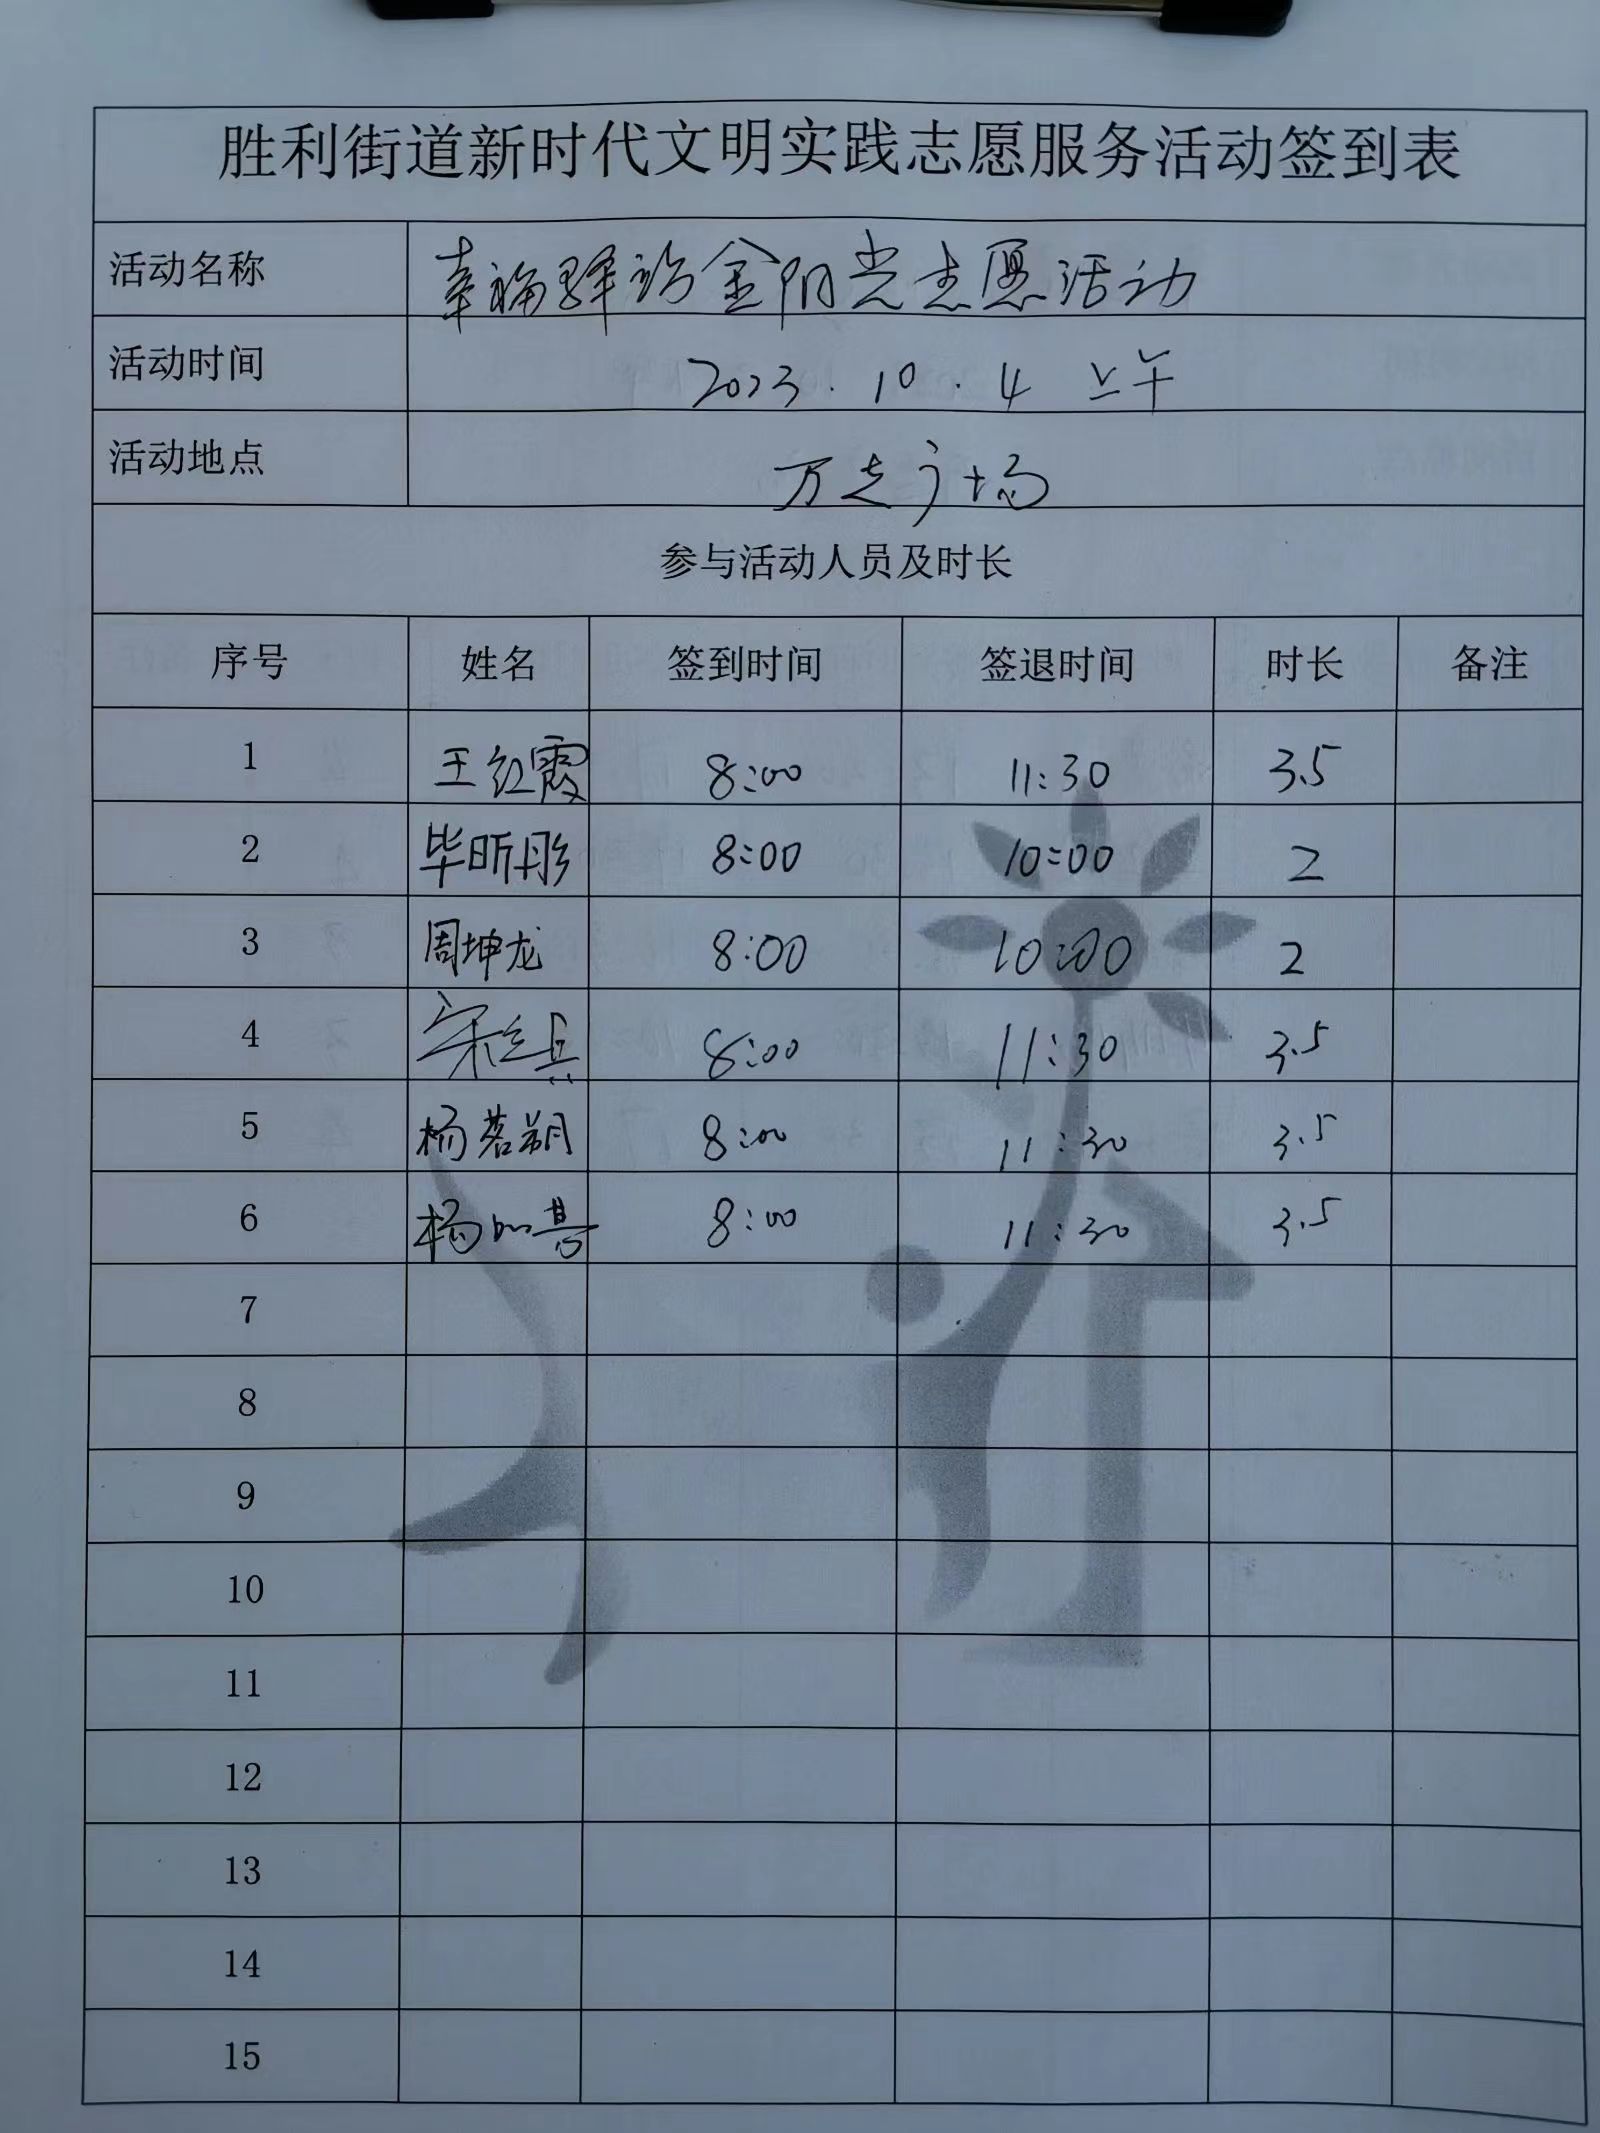 胜利街道新时代文明实践志愿服务活动签到表
活动名称 幸福驿站金阳光志愿活动
活动时间 2023.10.4 上午
活动地点 万达广场
参与活动人员及时长
序号 姓名 签到时间 签退时间 时长 备注
1 王红霞 8:00 11:30 3.5
2 毕昕彤 8:00 10:00 2
3 周坤龙 8:00 10:00 2
4 8:00 11:30 3.5
5 杨茗朔 8:00 11:30 3.5
6 8:00 11:30 3.5
7
8
9
10
11
12
13
14
15